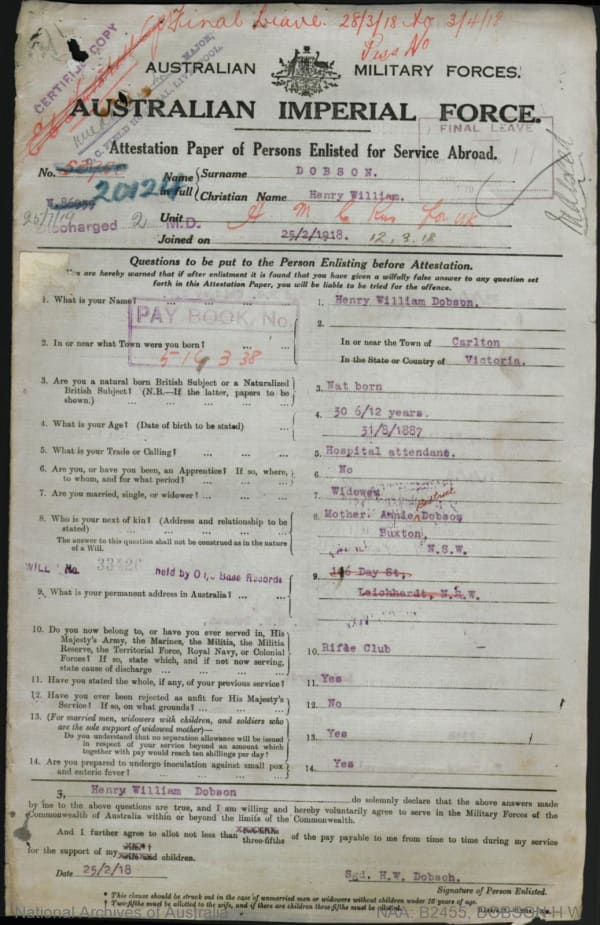 Final Leave. 28/3/18 to 3/4/18
Pass No
CERTIFIED COPY
AUSTRALIAN MILITARY FORCES.
AUSTRALIAN IMPERIAL FORCE.
FINAL LEAVE
Attestation Paper of Persons Enlisted for Service Abroad.
No. 20124
Name in full
Surname DOBSON.
Christian Name Henry William.
25/7/19
Discharged 2 M.D.
Unit
Joined on 25/2/1918. 12.3.18
Questions to be put to the Person Enlisting before Attestation.
You are hereby warned that if after enlistment it is found that you have given a wilfully false answer to any question set
forth in this Attestation Paper, you will be liable to be tried for the offence.
1. What is your Name? ... ... ...
1. Henry William Dobson.
PAY BOOK. No.
2. In or near what Town were you born? ... ...
2.
In or near the Town of Carlton
In the State or Country of Victoria.
3. Are you a natural born British Subject or a Naturalized
British Subject? (N.B.—If the latter, papers to be
shown.) ... ... ... ...
3. Nat born
4. What is your Age? (Date of birth to be stated) ...
4. 30 6/12 years.
31/8/1887
5. What is your Trade or Calling? ... ... ...
5. Hospital attendant.
6. Are you, or have you been, an Apprentice? If so, where,
to whom, and for what period? ... ... ...
6. No
7. Are you married, single, or widower? ... ... ...
7. Widower
8. Who is your next of kin? (Address and relationship to be
stated) ... ... ... ...
The answer to this question shall not be construed as in the nature
of a Will.
8. Mother. Annie Dobson
Buxton,
N.S.W.
WILL No. 33426 held by O i/c Base Records
9. What is your permanent address in Australia? ... ...
9. 146 Day St,
Leichhardt, N.S.W.
10. Do you now belong to, or have you ever served in, His
Majesty's Army, the Marines, the Militia, the Militia
Reserve, the Territorial Force, Royal Navy, or Colonial
Forces? If so, state which, and if not now serving,
state cause of discharge ... ... ...
10. Rifle Club
11. Have you stated the whole, if any, of your previous service?
11. Yes
12. Have you ever been rejected as unfit for His Majesty's
Service? If so, on what grounds? ... ... ...
12. No
13. (For married men, widowers with children, and soldiers who
are the sole support of widowed mother)—
Do you understand that no separation allowance will be issued
in respect of your service beyond an amount which
together with pay would reach ten shillings per day?
13. Yes
14. Are you prepared to undergo inoculation against small pox
and enteric fever? ... ... ... ...
14. Yes
I, Henry William Dobson do solemnly declare that the above answers made
by me to the above questions are true, and I am willing and hereby voluntarily agree to serve in the Military Forces of the
Commonwealth of Australia within or beyond the limits of the Commonwealth.
And I further agree to allot not less than three-fifths of the pay payable to me from time to time during my service
for the support of my children.
Date 25/2/18
Sgd. H.W. Dobson.
Signature of Person Enlisted.
* This clause should be struck out in the case of unmarried men or widowers without children under 16 years of age.
† Two-fifths must be allotted to the wife, and if there are children three-fifths must be allotted.
National Archives of Australia
NAA: B2455, DOBSON H W